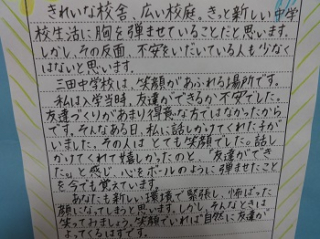 きれいな校舎、広い校庭。きっと新しい中学
校生活に胸を弾ませていることだと思います。
しかし、その反面、不安をいだいている人も少なく
はないと思います。
三田中学校は、笑顔があふれる場所です。
私は入学当時、友達ができるか不安でした。
友達づくりがあまり得意な方ではなかったから
です。そんなある日、私に話しかけてくれた子が
いました。その人は とても笑顔でした。話し
かけてくれて嬉しかったのと、「友達ができ
た。」と感じ、心をボールのように弾ませたこと
を今でも覚えています。
あなたも新しい環境で緊張し、怖ばった
顔になってしまうと思います。しかし、そんなときは
笑ってみましょう。笑顔でいれば自然に友達が
よってくるはずです。